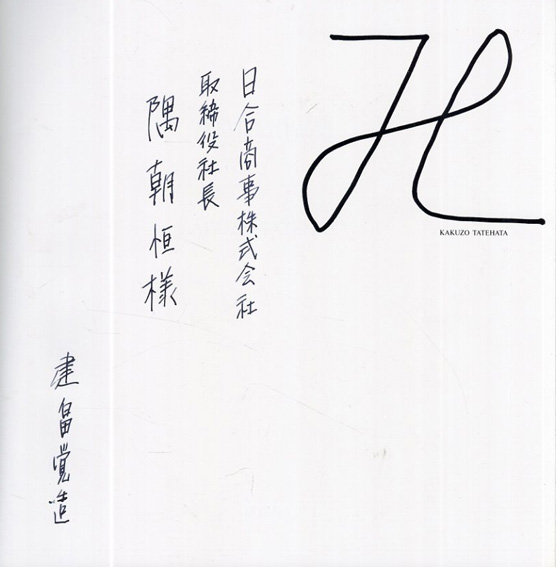 日合商事株式会社
取締役社長
隅朝恒様
建畠覚造
KAKUZO TATEHATA